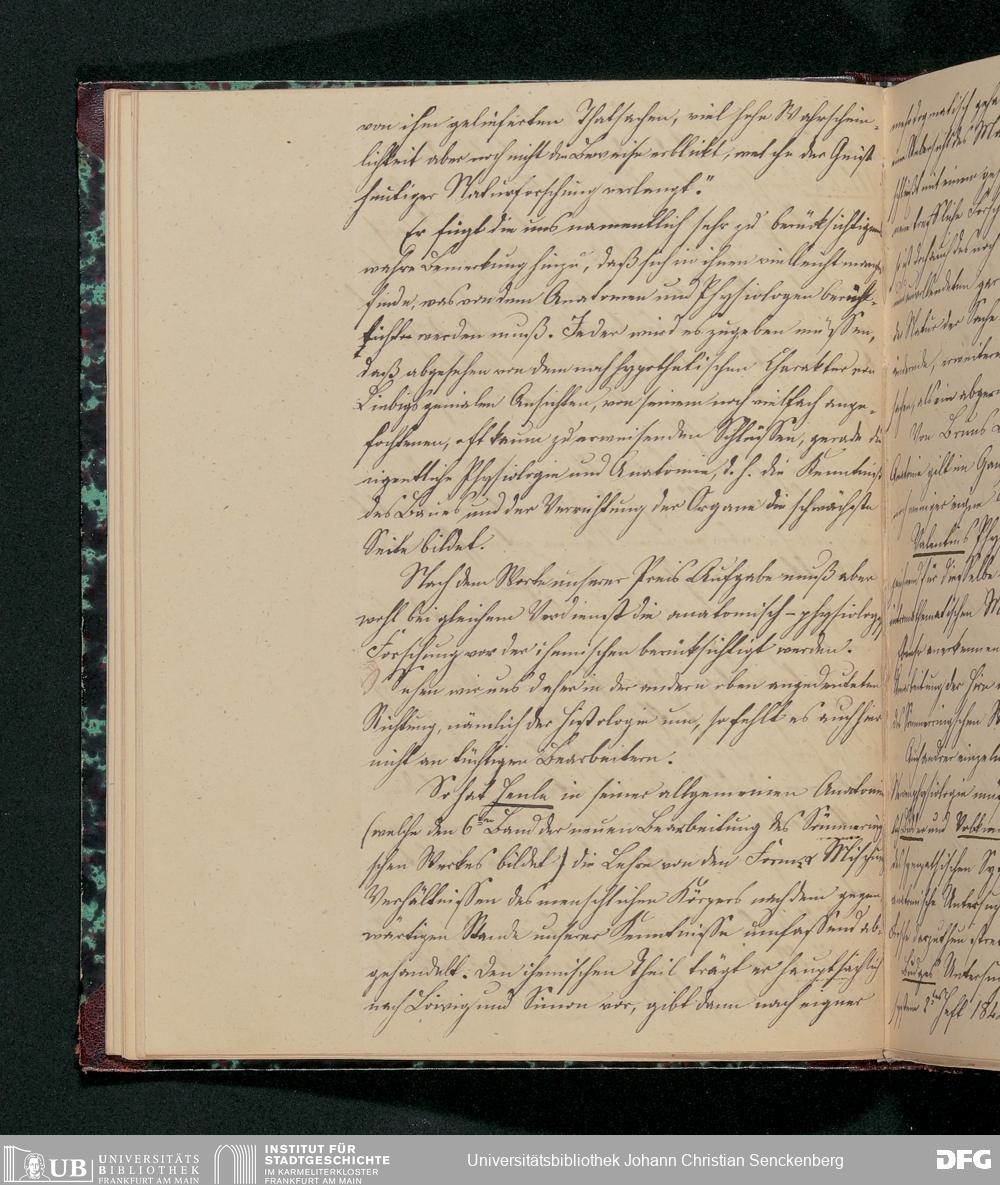 von ihm gelieferten Thatsachen, viel hohe Wahrschein-
lichkeit aber noch nicht die Beweise erblickt, welche der Geist
heutiger Naturforschung verlangt."
Er fügt die uns namentlich sehr zu berücksichtigen
wahre Bemerkung hinzu, daß sich in ihnen vielleicht manches
finde, was von dem Anatomen und Physiologen berück-
sichtigt werden muß. Jeder wird es zugeben müssen,
daß abgesehen von dem noch hypothetischen Charakter von
Liebigs genialen Ansichten, von seinem noch vielfach ange-
fochtenen, oft kaum zu erweisenden Schlüssen, gerade die
eigentliche Physiologie und Anatomie, d. h. die Kenntniß
des Baues und der Verrichtung der Organe die schwächste
Seite bildet.
Nach dem Worte unserer Preis Aufgabe muß aber
wohl bei gleichem Verdienst die anatomisch-physiolog.
Forschung vor der chemischen berücksichtigt werden.
Sehen wir uns daher in der andern oben angedeuteten
Richtung, nämlich der Histologie um, so fehlt es auch hier
nicht an tüchtigen Bearbeitern.
So hat Henle in seiner allgemeinen Anatomie
(welche den 6ten Band der neuen Bearbeitung des Sömmering-
schen Werkes bildet) die Lehre von den Form & Mischungs
Verhältnissen des menschlichen Körpers nach dem gegen-
wärtigen Stande unserer Kenntnisse umfassend ab-
gehandelt. Den chemischen Theil trägt er hauptsächlich
nach Löwig und Simon vor, gibt dann nach eigner
Von Bruns
Valentins
UB UNIVERSITÄTS
BIBLIOTHEK
FRANKFURT AM MAIN
INSTITUT FÜR
STADTGESCHICHTE
IM KARMELITERKLOSTER
FRANKFURT AM MAIN
Universitätsbibliothek Johann Christian Senckenberg
DFG